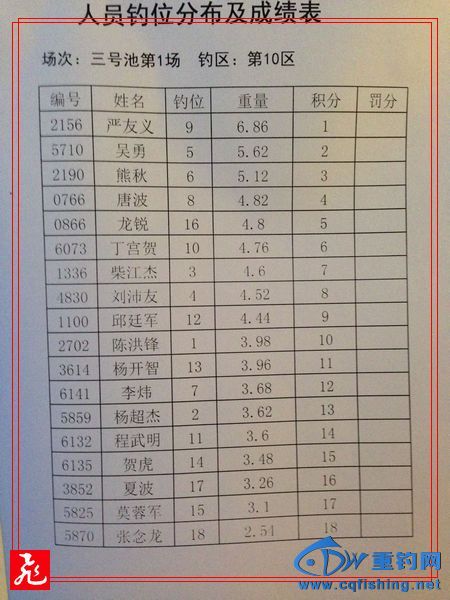 人员钓位分布及成绩表
场次：三号池第1场 钓区：第10区
编号 姓名 钓位 重量 积分 罚分
2156 严友义 9 6.86 1
5710 吴勇 5 5.62 2
2190 熊秋 6 5.12 3
0766 唐波 8 4.82 4
0866 龙锐 16 4.8 5
6073 丁宫贺 10 4.76 6
1336 柴江杰 3 4.6 7
4830 刘沛友 4 4.52 8
1100 邱廷军 12 4.44 9
2702 陈洪锋 1 3.98 10
3614 杨开智 13 3.96 11
6141 李炜 7 3.68 12
5859 杨超杰 2 3.62 13
6132 程武明 11 3.6 14
6135 贺虎 14 3.48 15
3852 夏波 17 3.26 16
5825 莫蓉军 15 3.1 17
5870 张念龙 18 2.54 18
重钓网
www.cqfishing.net